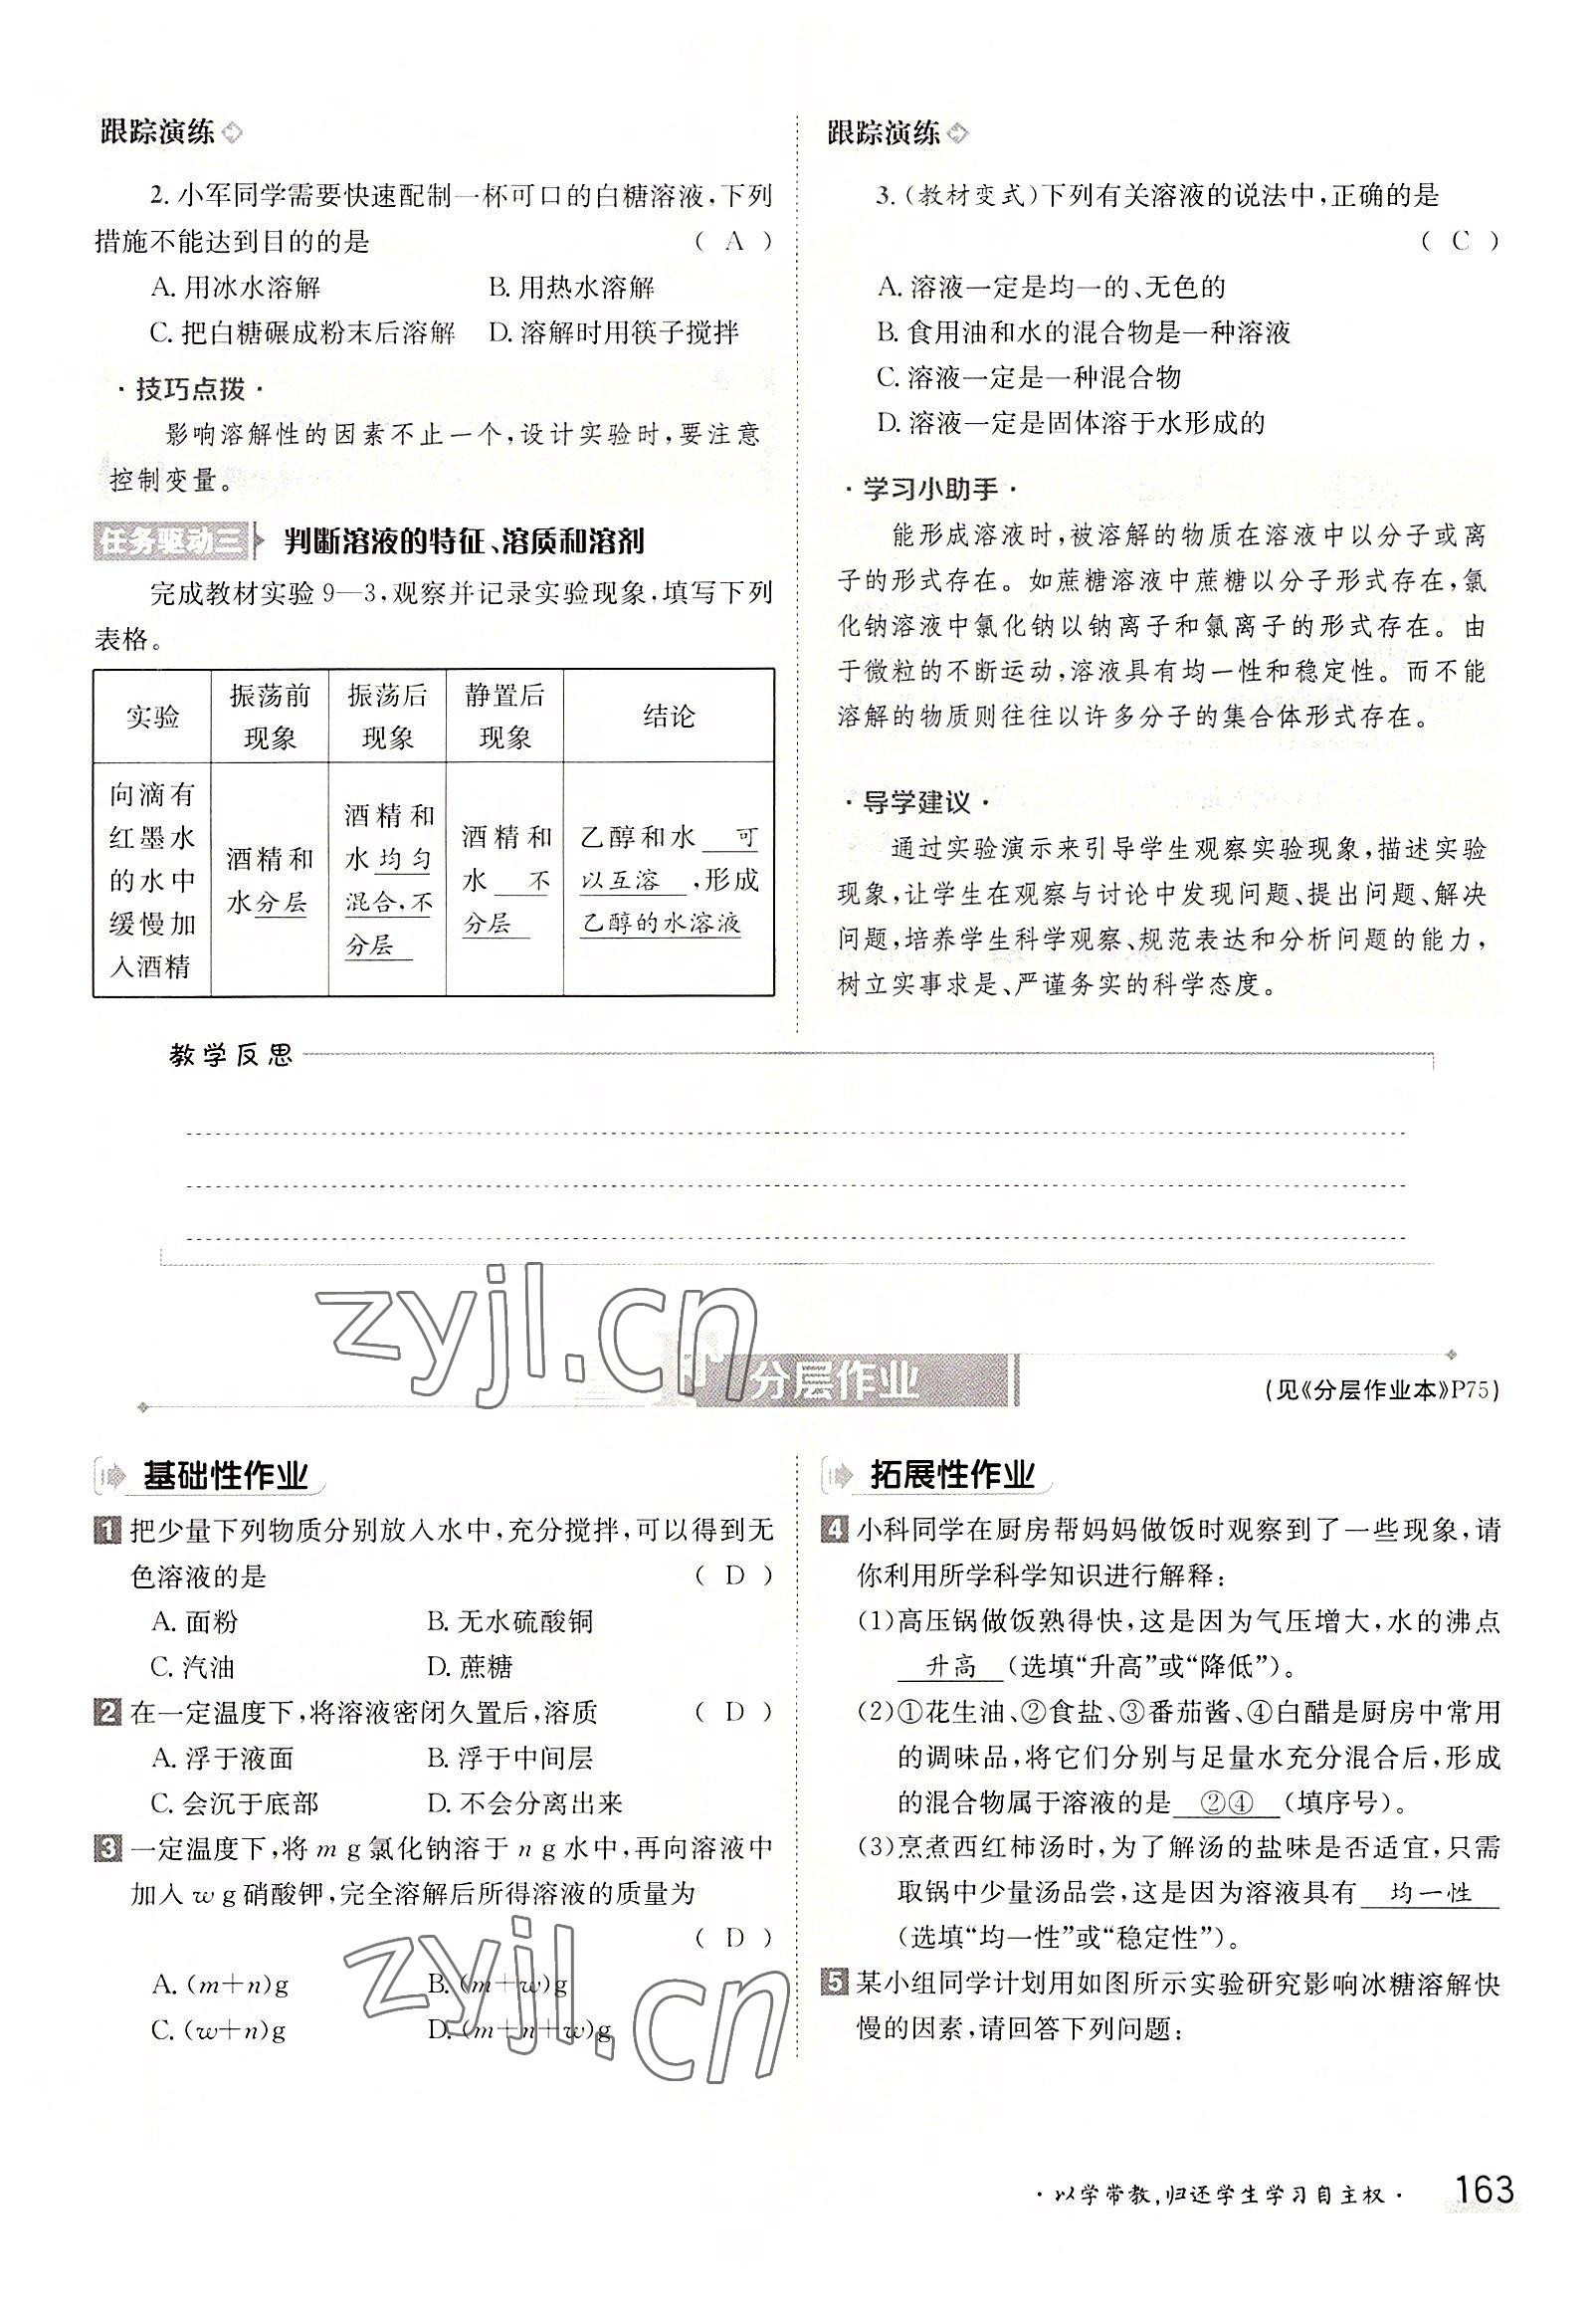 跟踪演练
2. 小军同学需要快速配制一杯可口的白糖溶液,下列
措施不能达到目的的是 ( A )
A. 用冰水溶解 B. 用热水溶解
C. 把白糖碾成粉末后溶解 D. 溶解时用筷子搅拌
·技巧点拨·
影响溶解性的因素不止一个,设计实验时,要注意
控制变量。
任务驱动三 判断溶液的特征、溶质和溶剂
完成教材实验9—3,观察并记录实验现象,填写下列
表格。
实验 振荡前现象 振荡后现象 静置后现象 结论
向滴有红墨水的水中缓慢加入酒精 酒精和水分层 酒精和水均匀混合,不分层 酒精和水不分层 乙醇和水可以互溶,形成乙醇的水溶液
跟踪演练
3. (教材变式)下列有关溶液的说法中,正确的是
( C )
A. 溶液一定是均一的、无色的
B. 食用油和水的混合物是一种溶液
C. 溶液一定是一种混合物
D. 溶液一定是固体溶于水形成的
·学习小助手·
能形成溶液时,被溶解的物质在溶液中以分子或离
子的形式存在。如蔗糖溶液中蔗糖以分子形式存在,氯
化钠溶液中氯化钠以钠离子和氯离子的形式存在。由
于微粒的不断运动,溶液具有均一性和稳定性。而不能
溶解的物质则往往以许多分子的集合体形式存在。
·导学建议·
通过实验演示来引导学生观察实验现象,描述实验
现象,让学生在观察与讨论中发现问题、提出问题、解决
问题,培养学生科学观察、规范表达和分析问题的能力,
树立实事求是、严谨务实的科学态度。
教学反思
zyjl.cn
分层作业
(见《分层作业本》P75)
基础性作业
1 把少量下列物质分别放入水中,充分搅拌,可以得到无
色溶液的是 ( D )
A. 面粉 B. 无水硫酸铜
C. 汽油 D. 蔗糖
2 在一定温度下,将溶液密闭久置后,溶质 ( D )
A. 浮于液面 B. 浮于中间层
C. 会沉于底部 D. 不会分离出来
3 一定温度下,将 m g 氯化钠溶于 n g 水中,再向溶液中
加入 w g 硝酸钾,完全溶解后所得溶液的质量为
( D )
A. (m+n)g B. (m+w)g
C. (w+n)g D. (m+n+w)g
zyjl.cn
拓展性作业
4 小科同学在厨房帮妈妈做饭时观察到了一些现象,请
你利用所学科学知识进行解释:
(1)高压锅做饭熟得快,这是因为气压增大,水的沸点
升高 (选填“升高”或“降低”)。
(2)①花生油、②食盐、③番茄酱、④白醋是厨房中常用
的调味品,将它们分别与足量水充分混合后,形成
的混合物属于溶液的是 ②④ (填序号)。
(3)烹煮西红柿汤时,为了解汤的盐味是否适宜,只需
取锅中少量汤品尝,这是因为溶液具有 均一性
(选填“均一性”或“稳定性”)。
5 某小组同学计划用如图所示实验研究影响冰糖溶解快
慢的因素,请回答下列问题:
·以学带教,归还学生学习自主权· 163